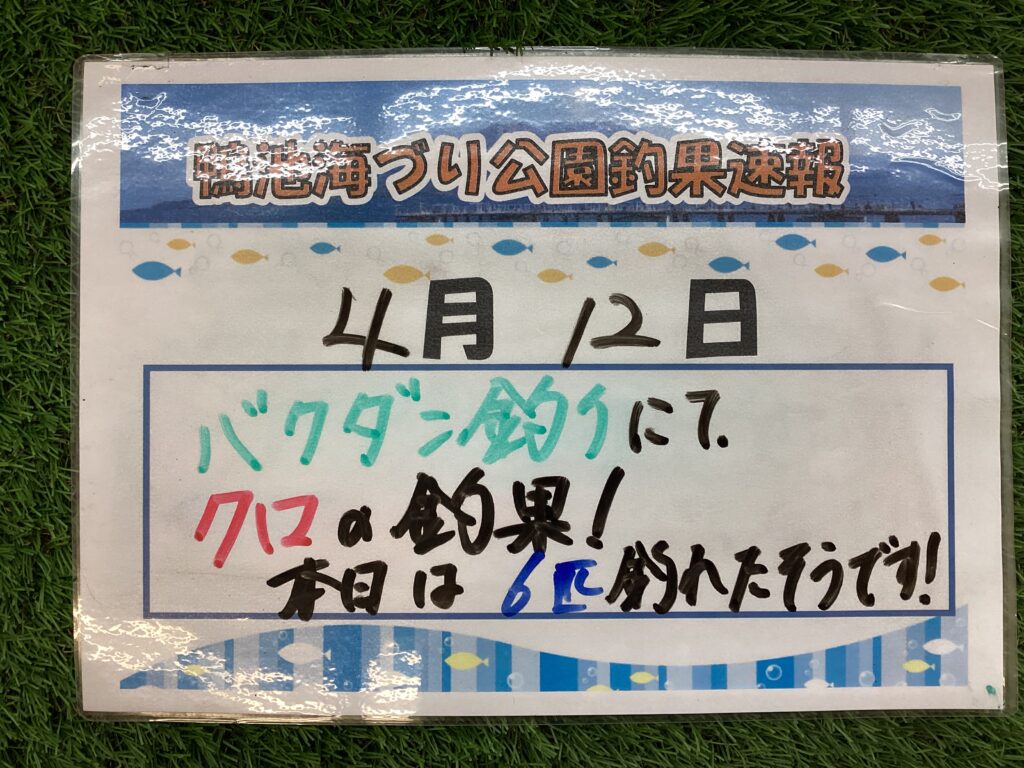 鴨池海づり公園釣果速報
4月 12日
バクダン釣りにて、
クロの釣果!
本日は6匹釣れたそうです!